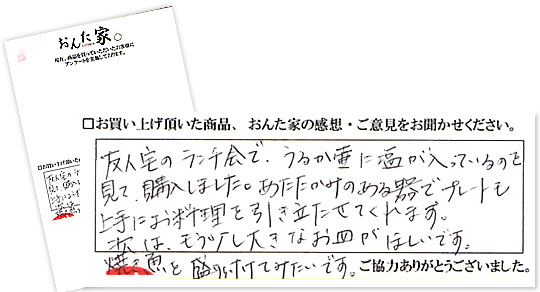 おんた家。
現在、商品を買っていただいたお客様に
アンケートを実施しております。
□お買い上げ頂いた商品、おんた家の感想・ご意見をお聞かせください。
友人宅のランチ会で、うるか壷に塩が入っているのを
見て、購入しました。あたたかみのある器でプレートも
上手にお料理を引き立たせてくれます。
次は、もう少し大きなお皿がほしいです。
焼き魚を盛り付けてみたいです。ご協力ありがとうございました。